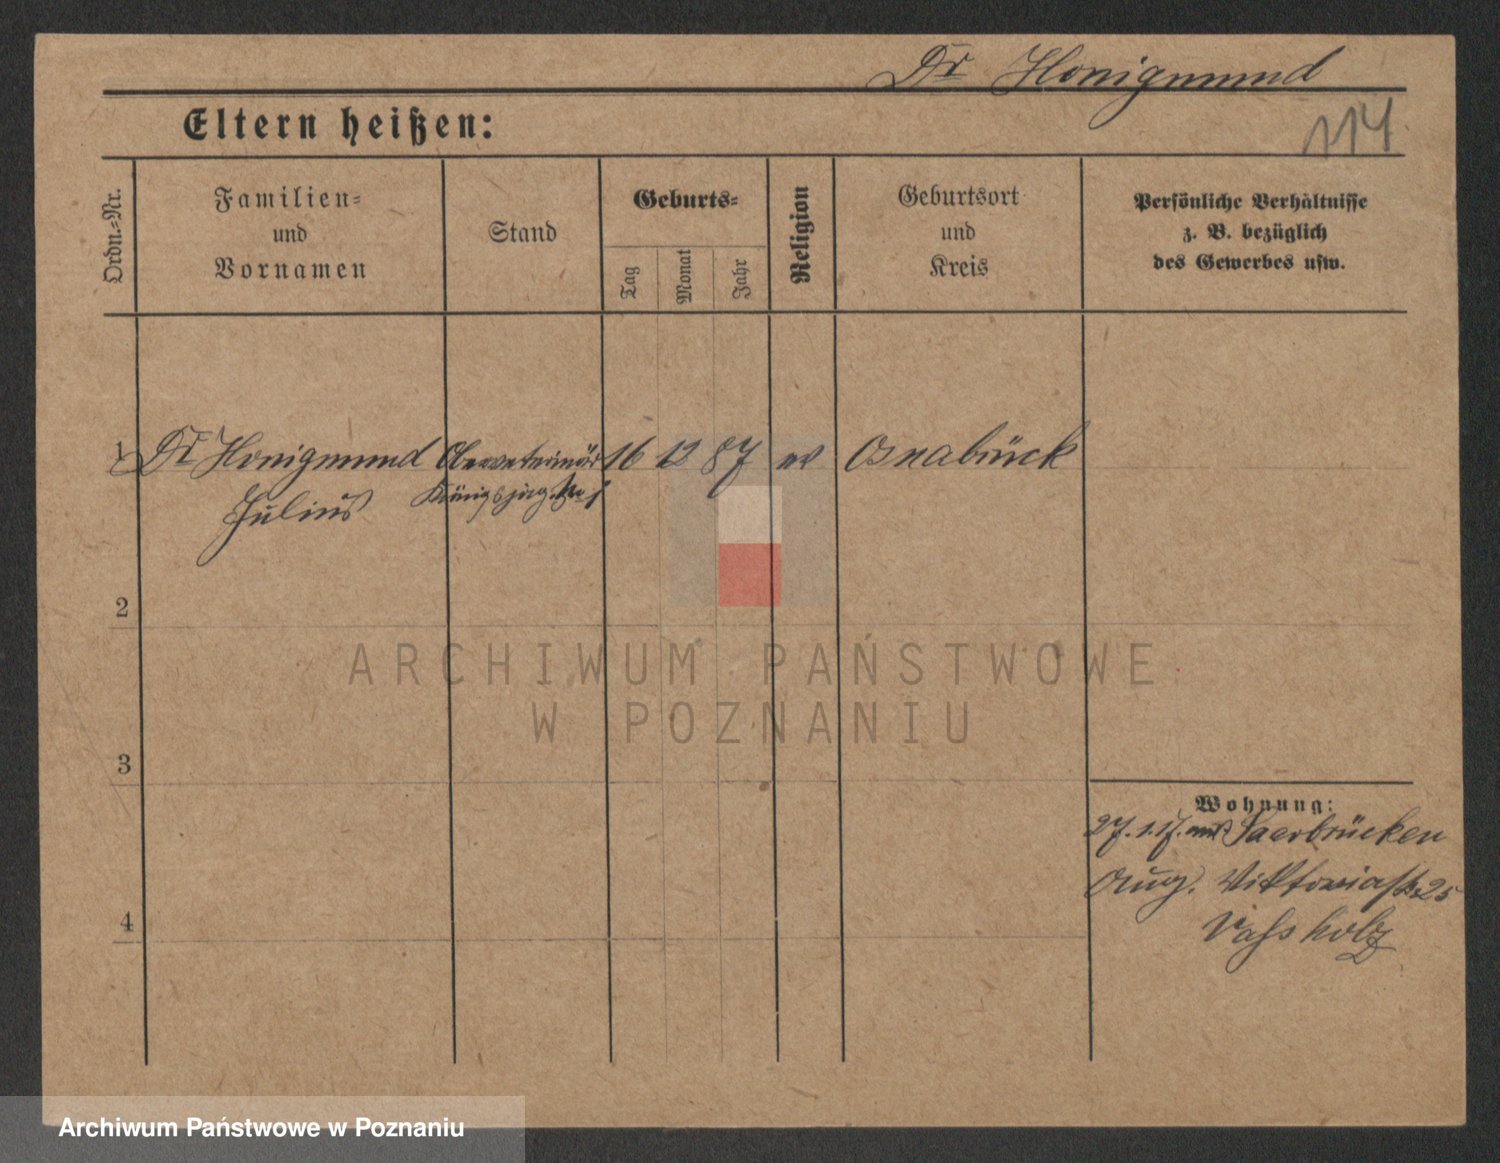 Dr Honigmund
Eltern heißen:
114
Ordn.-Nr.
Familien-
und
Vornamen
Stand
Geburts-
Tag
Monat
Jahr
Religion
Geburtsort
und
Kreis
Persönliche Verhältnisse
z. B. bezüglich
des Gewerbes usw.
1 Dr Honigmund Oberveterinär 16 12 87 ev Osnabrück
Julius Königsjäg.
2
ARCHIWUM PAŃSTWOWE
W POZNANIU
3
Wohnung:
27.1.17. aus Saarbrücken
Aug. Viktoriastr 25
Vassholz
4
Archiwum Państwowe w Poznaniu